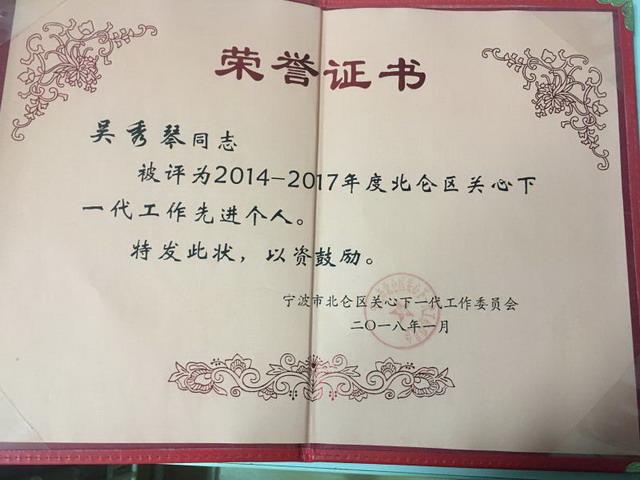 荣誉证书
吴秀琴同志
被评为2014-2017年度北仑区关心下
一代工作先进个人。
特发此状，以资鼓励。
宁波市北仑区关心下一代工作委员会
二〇一八年一月